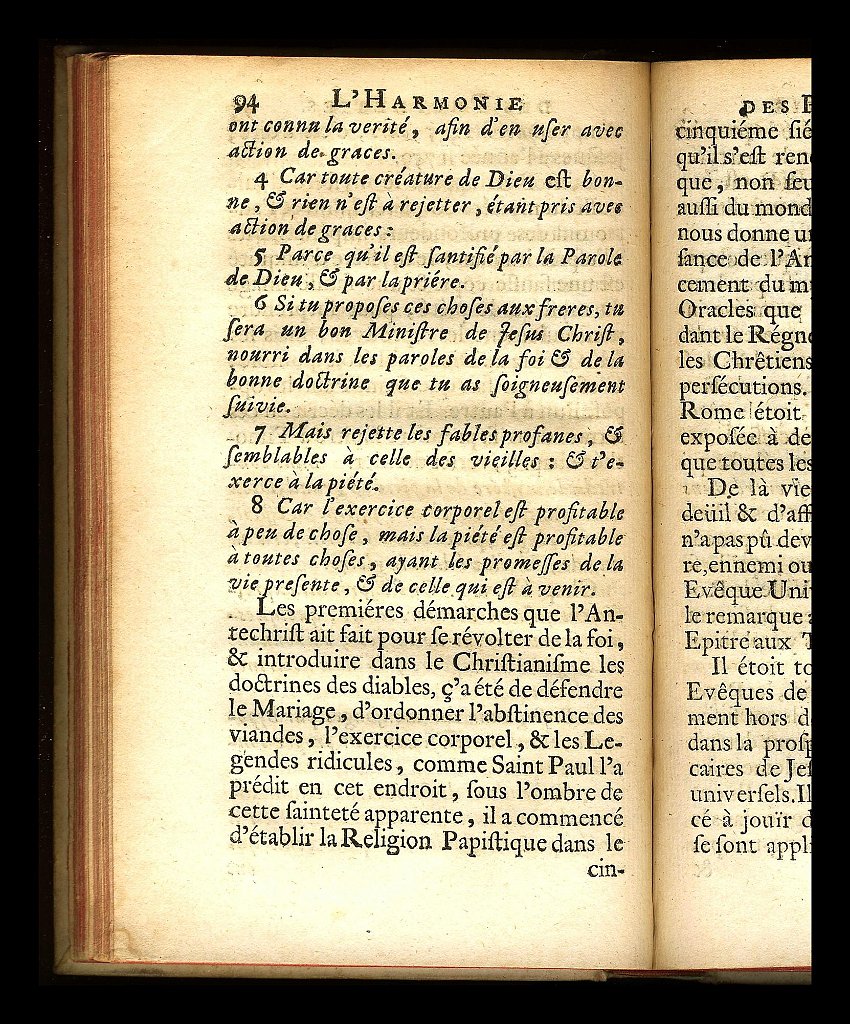 94 L'HARMONIE
ont connu la verité, afin d'en uſer avec
action de graces.
4 Car toute créature de Dieu eſt bon-
ne, & rien n'eſt à rejetter, étant pris avec
action de graces:
5 Parce qu'il eſt ſantifié par la Parole
de Dieu, & par la priére.
6 Si tu propoſes ces choſes aux freres, tu
ſera un bon Miniſtre de Jeſus Chriſt,
nourri dans les paroles de la foi & de la
bonne doctrine que tu as ſoigneuſement
ſuivie.
7 Mais rejette les fables profanes, &
ſemblables à celle des vieilles: & t'e-
xerce à la piété.
8 Car l'exercice corporel eſt profitable
à peu de choſe, mais la piété eſt profitable
à toutes choſes, ayant les promeſſes de la
vie preſente, & de celle qui eſt à venir.
Les premiéres démarches que l'An-
techriſt ait fait pour ſe révolter de la foi,
& introduire dans le Chriſtianiſme les
doctrines des diables, ç'a été de défendre
le Mariage, d'ordonner l'abſtinence des
viandes, l'exercice corporel, & les Le-
gendes ridicules, comme Saint Paul l'a
prédit en cet endroit, ſous l'ombre de
cette ſainteté apparente, il a commencé
d'établir la Religion Papiſtique dans le
cin-
DES P
cinquiéme ſié
qu'il s'eſt ren
que, non ſeu
auſſi du mond
nous donne un
ſance de l'An
cement du m
Oracles que
dant le Régne
les Chrêtiens
perſécutions.
Rome étoit
expoſée à de
que toutes les
De là vie
deüil & d'aff
n'a pas pû dev
re, ennemi ou
Evêque Uni
le remarque
Epitre aux T
Il étoit to
Evêques de
ment hors d
dans la proſp
caires de Jeſ
univerſels. Il
cé à jouïr d
ſe ſont appl